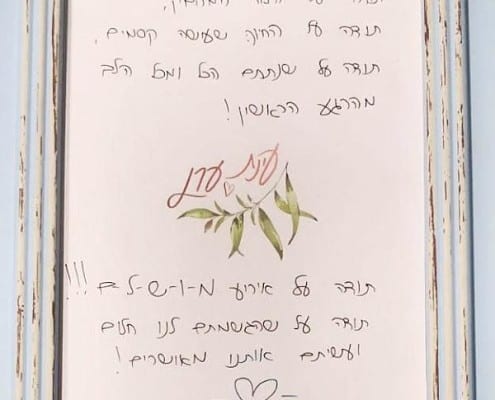 תודה על
תודה על החיוך שעושה קסמים,
תודה על שנתתם הכל ומכל הלב
מהרגע הראשון!
עינת ♡ ערן
תודה על אירוע מ-ו-ש-ל-ם!!!
תודה על שהגשמתם לנו חלום
ועשיתם אותנו מאושרים!